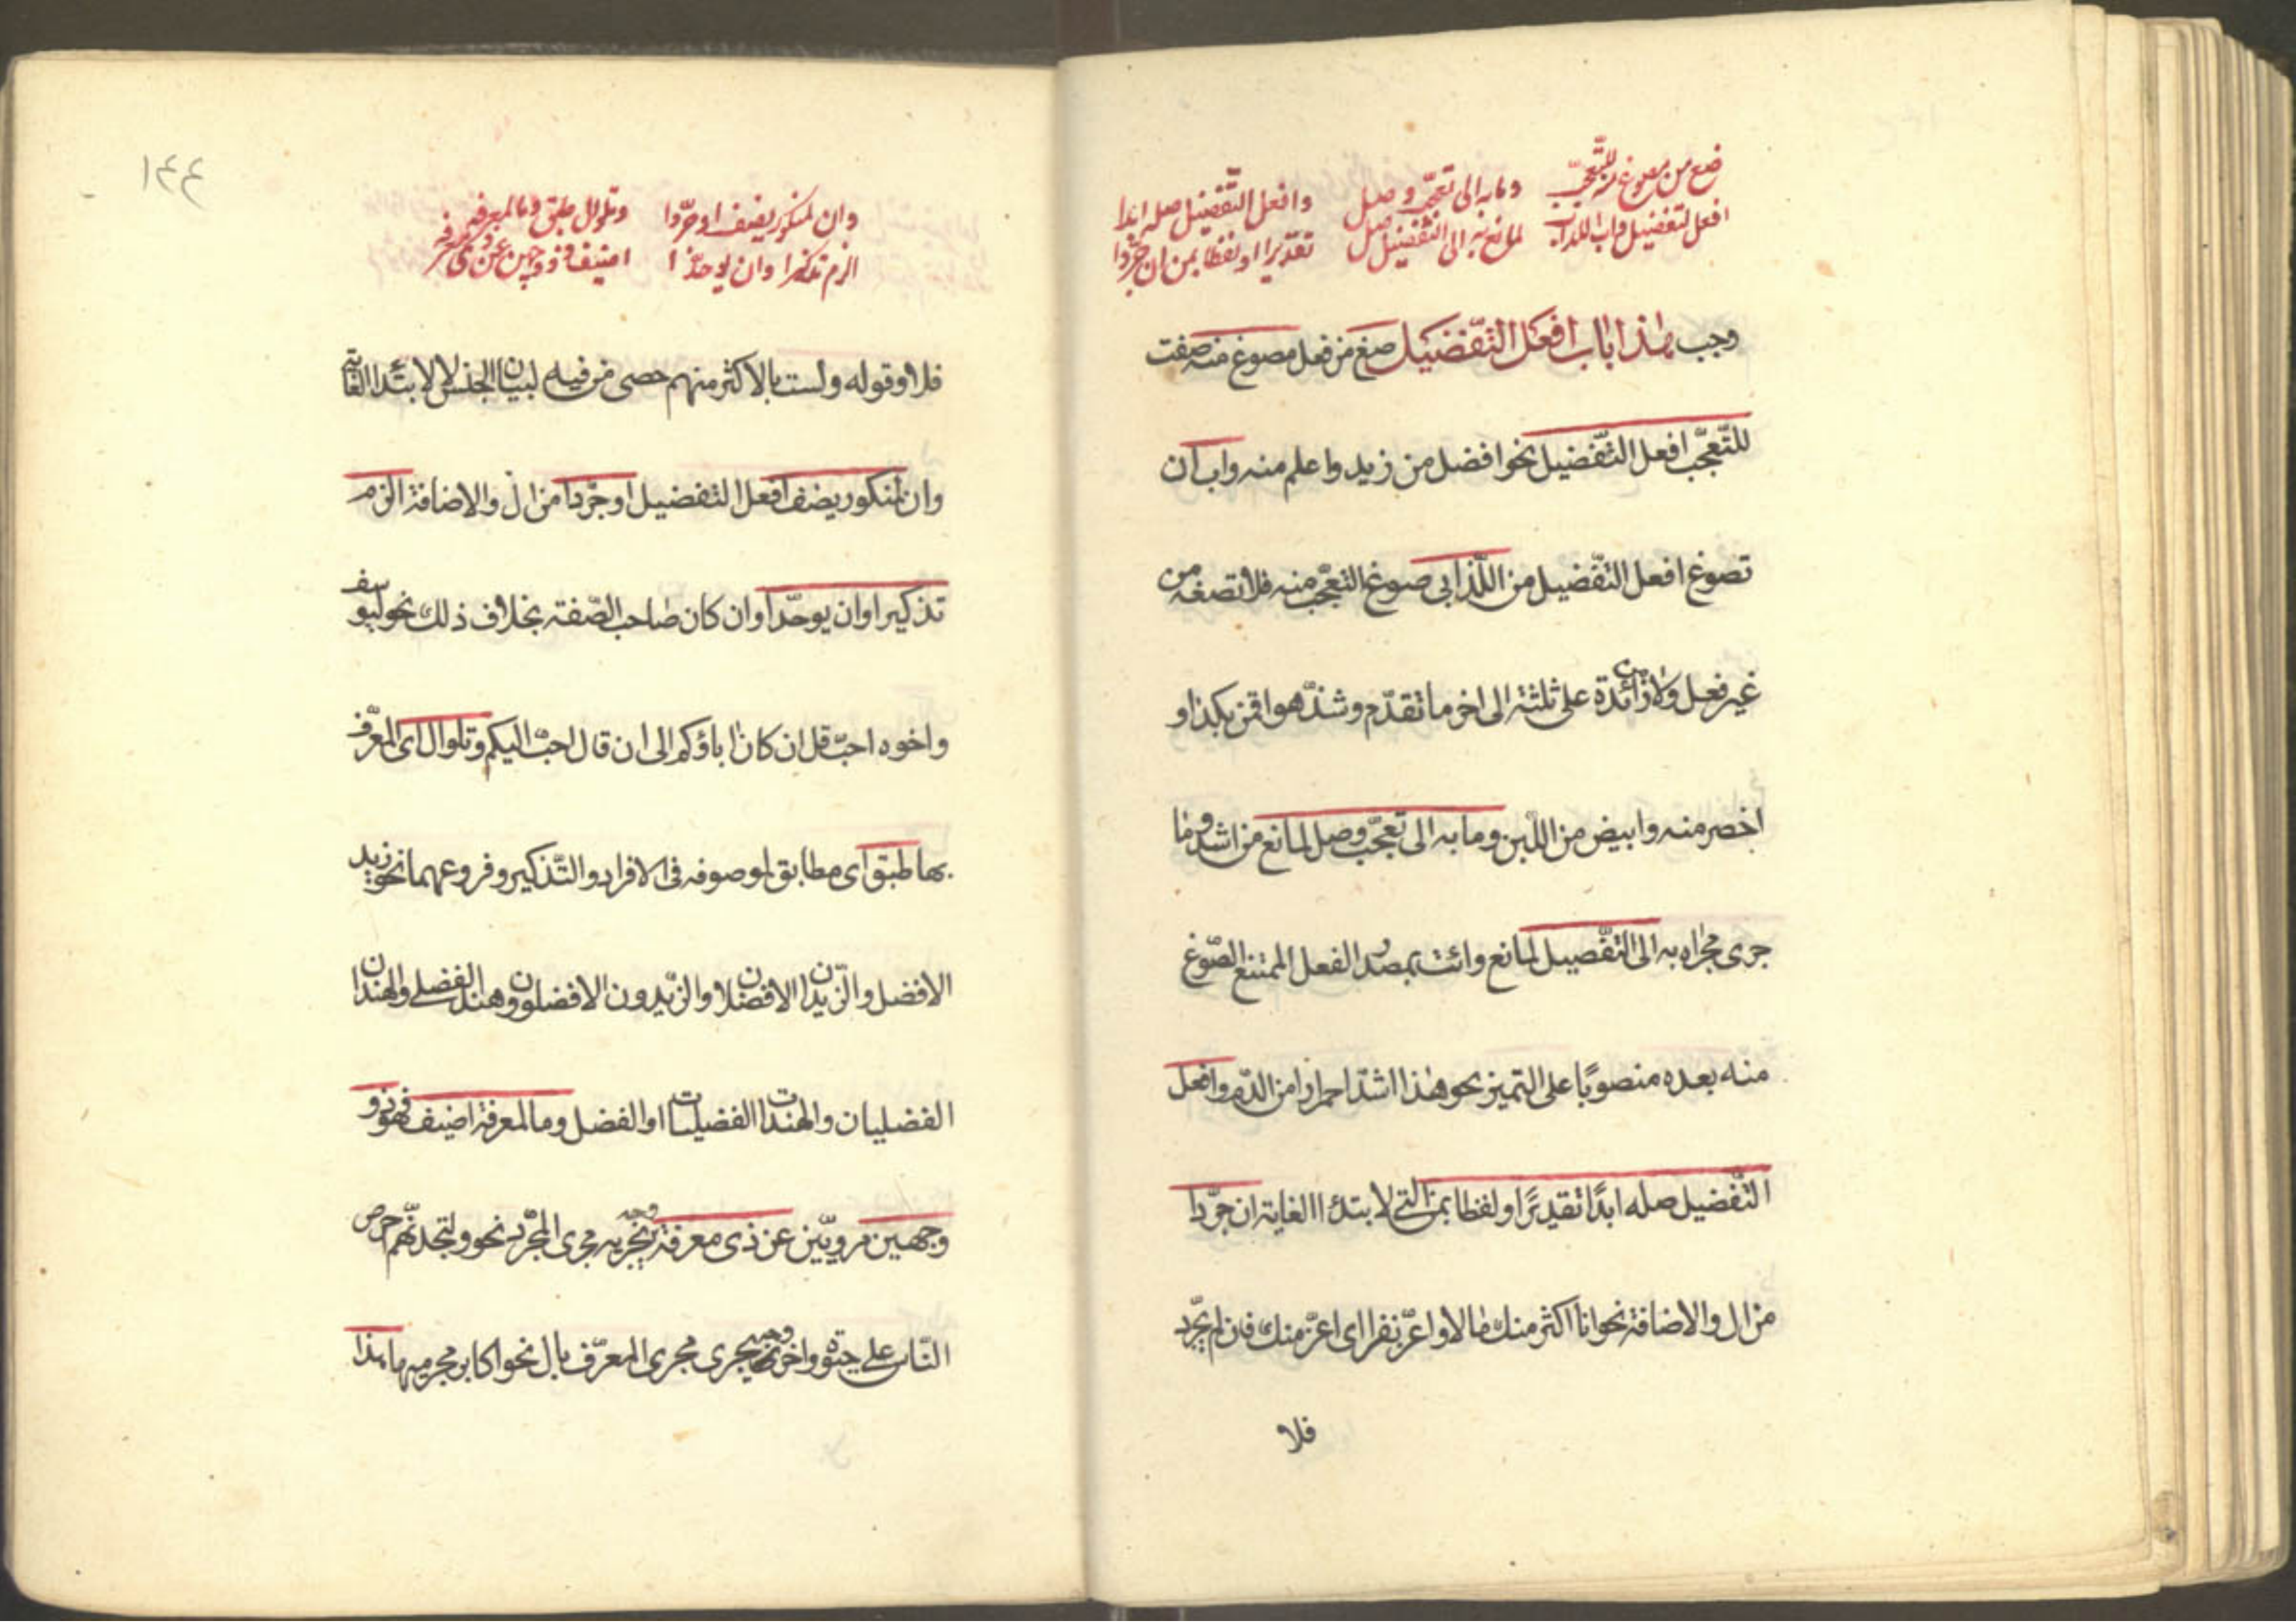 صغ من مصوغ منه للتعجب وما به الى تعجب وصل وافعل التفضيل صله ابدا
افعل لتفضيل واب اللذ ابى لمانع به الى التفضيل صل تقديرا او لفظا بمن ان جردا
وجب هذا باب افعل التفضيل صغ من فعل مصوغ منه صفت
للتعجب افعل التفضيل نحو افضل من زيد واعلم منه واب ان
تصوغ افعل التفضيل من اللذ ابى صوغ التعجب منه فلا تصغه من
غير فعل ولا من زائدة على ثلثة الى اخر ما تقدم وشذ هو اقمن بكذا و
اخصر منه وابيض من اللبن وما به الى تعجب وصل لمانع من اشد وما
جرى مجراه به الى التفضيل لمانع وائت بمصدر الفعل الممتنع الصوغ
منه بعده منصوبا على التميز نحو هذا اشد احمرارا من الدم وافعل
التفضيل صله ابدا تقديرا او لفظا بمن التي لابتداء الغاية ان جردا
من ال والاضافة نحو انا اكثر منك مالا واعز نفرا اى اعز منك فان لم يجرد
فلا
١٤٤
وان لمنكور يضف او جردا وتلو ال طبق وما لمعرفه
الزم تذكيرا وان يوحدا اضيف ذو وجهين عن ذى معرفه
فلا وقوله ولست بالاكثر منهم حصى من فيه لبيان الجنس لا لابتداء الغاية
وان لمنكور يضف افعل التفضيل او جردا من ال والاضافة الزم
تذكيرا وان يوحدا وان كان صاحب الصفة بخلاف ذلك نحو ليوسف
واخوه احب قل ان كان اباؤكم الى ان قال احب اليكم وتلو ال اى المعرف
بها طبق اى مطابق لموصوفه فى الافراد والتذكير وفروعهما نحو زيد
الافضل والزيدان الافضلان والزيدون الافضلون وهند الفضلى والهندان
الفضليان والهندات الفضليات او الفضل وما لمعرفة اضيف فهو ذو
وجهين مرويين عن ذى معرفة وجه يجريه مجرى المجرد نحو ولتجدنهم احرص
الناس على حيوة واخر وجه يجرى مجرى المعرف بال نحو اكابر مجرميها هذا